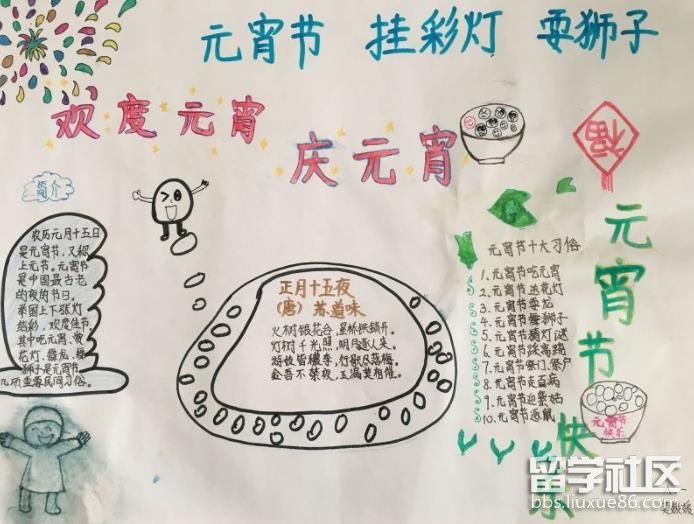 元宵节 挂彩灯 耍狮子
欢度元宵
庆元宵
福
简介
农历元月十五日
是元宵节,又称
上元节。元宵节
是中国最古老
的夜的节日。
举国上下张灯
结彩,欢度佳节。
其中吃元宵、赏
花灯、舞龙、舞
狮子是元宵节
几项重要民间习俗。
正月十五夜
(唐)苏道味
火树银花合,星桥铁锁开。
灯树千光照,明月逐人来。
游妓皆秾李,行歌尽落梅。
金吾不禁夜,玉漏莫相催。
元宵节十大习俗
1.元宵节吃元宵
2.元宵节送花灯
3.元宵节耍龙
4.元宵节舞狮子
5.元宵节猜灯谜
6.元宵节踩高跷
7.元宵节祭门、祭户
8.元宵节走百病
9.元宵节迎紫姑
10.元宵节逐鼠
元宵节快乐
元宵节
快乐
留学社区
bbs.liuxue86.com